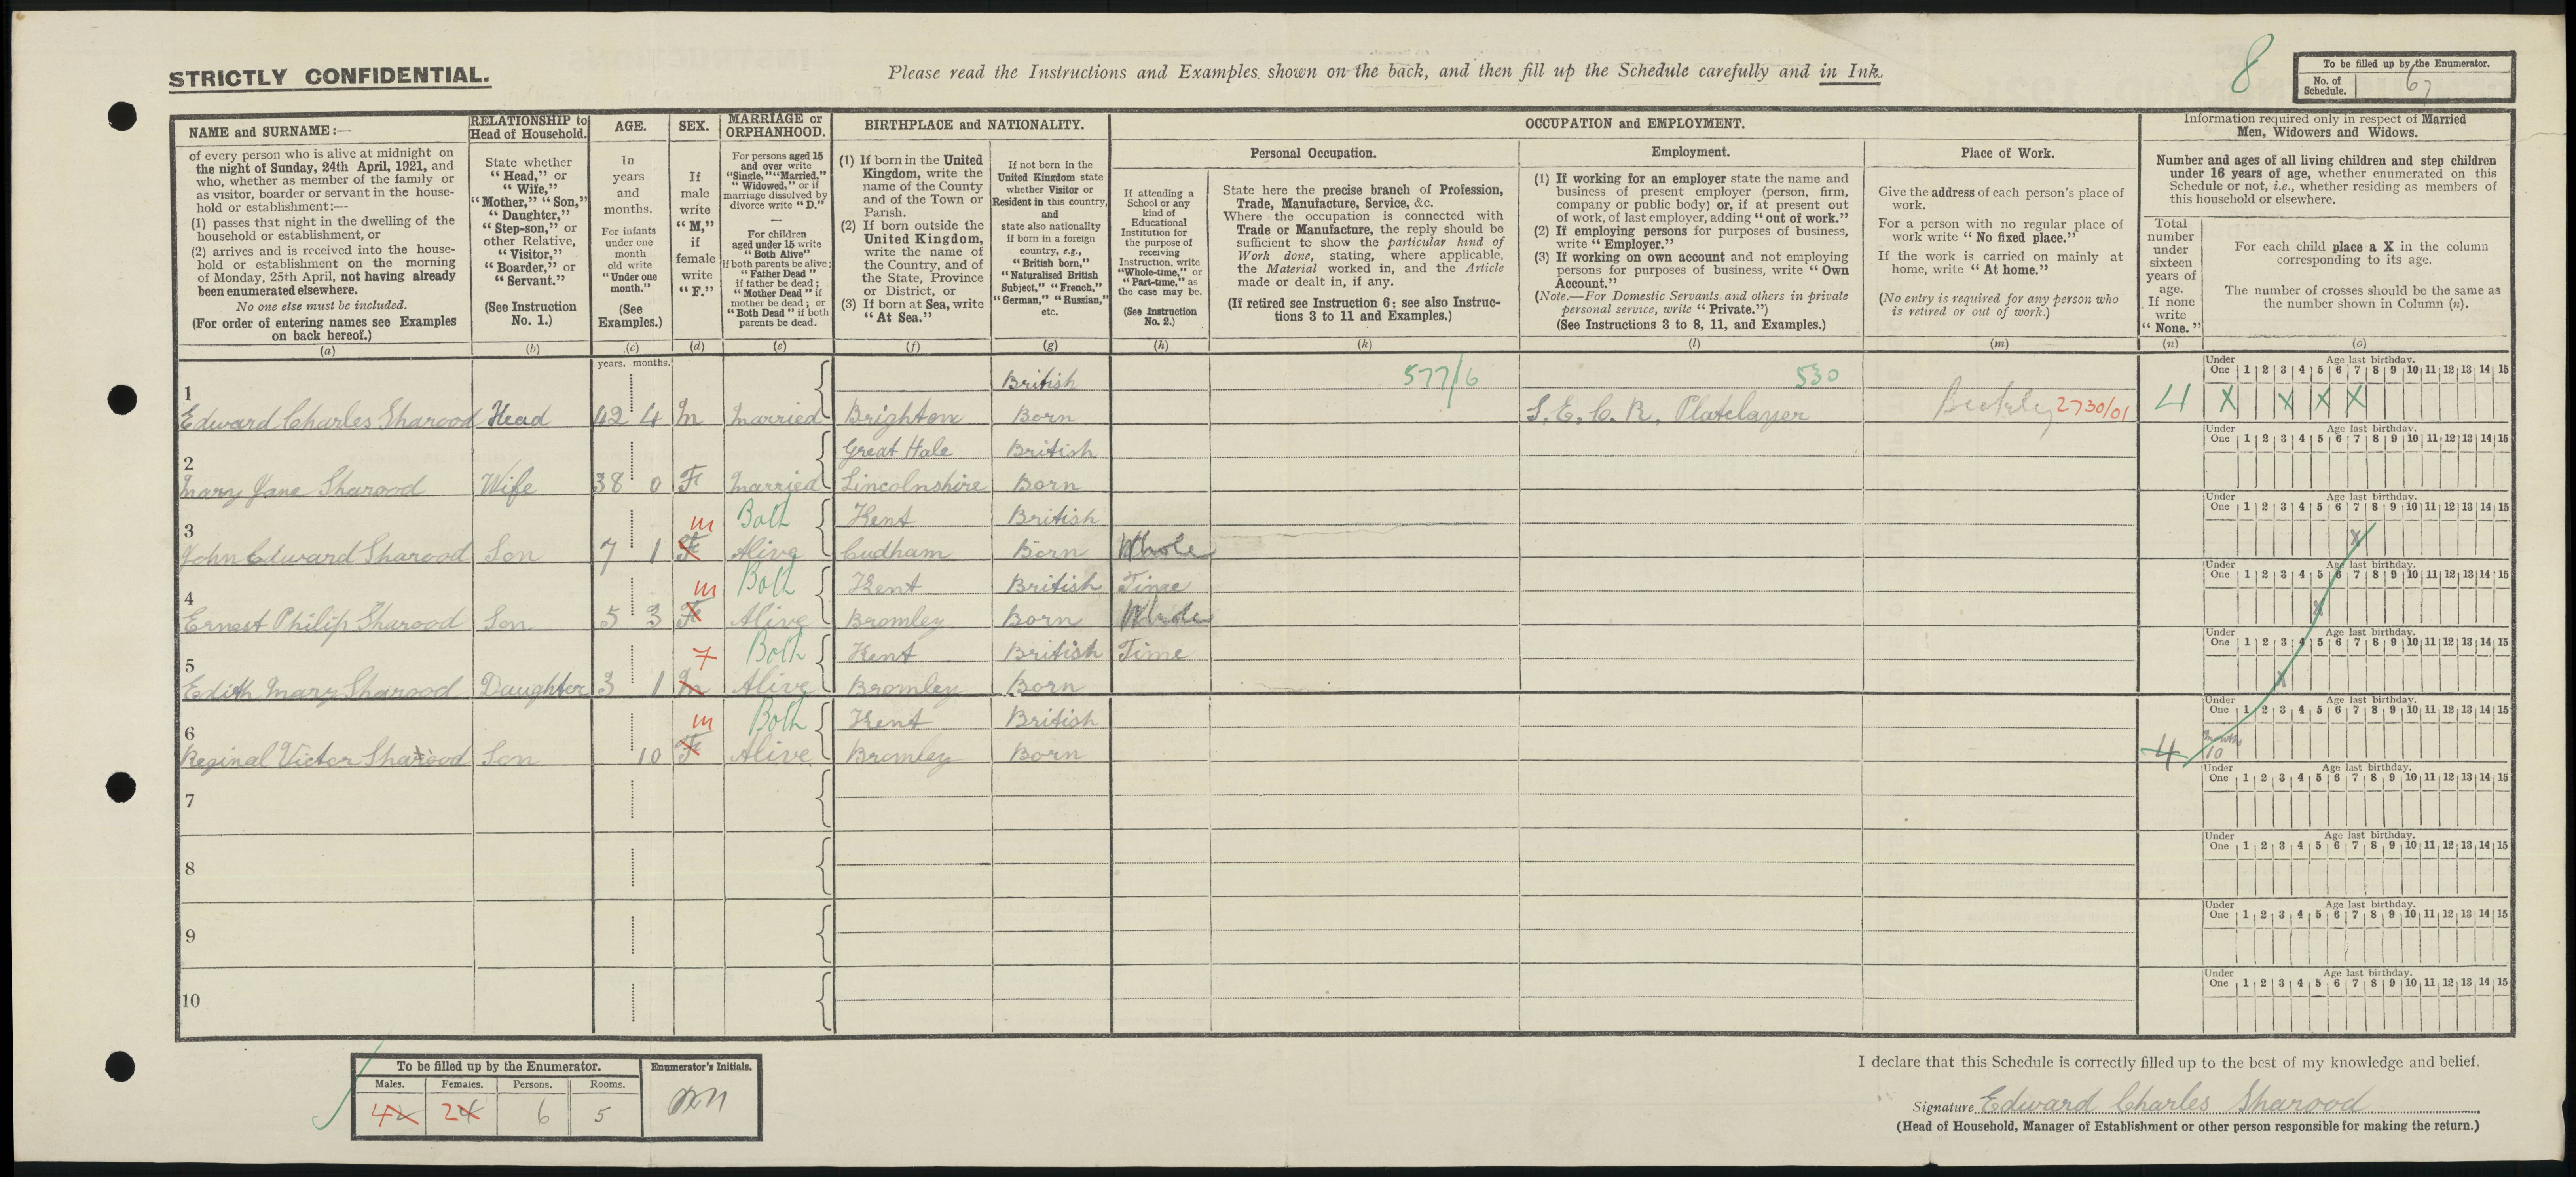 STRICTLY CONFIDENTIAL.
Please read the Instructions and Examples shown on the back, and then fill up the Schedule carefully and in Ink.
8
To be filled up by the Enumerator.
No. of Schedule. 67
NAME and SURNAME:—
of every person who is alive at midnight on
the night of Sunday, 24th April, 1921, and
who, whether as member of the family or
as visitor, boarder or servant in the house-
hold or establishment:—
(1) passes that night in the dwelling of the
household or establishment, or
(2) arrives and is received into the house-
hold or establishment on the morning
of Monday, 25th April, not having already
been enumerated elsewhere.
No one else must be included.
(For order of entering names see Examples
on back hereof.)
(a)
RELATIONSHIP to
Head of Household.
State whether
"Head," or
"Wife,"
"Mother," "Son,"
"Daughter,"
"Step-son," or
other Relative,
"Visitor,"
"Boarder," or
"Servant."
(See Instruction
No. 1.)
(b)
AGE.
In
years
and
months.
For infants
under one
month
old write
"Under one
month."
(See
Examples.)
(c)
SEX.
If
male
write
"M,"
if
female
write
"F."
(d)
MARRIAGE or
ORPHANHOOD.
For persons aged 15
and over write
"Single," "Married,"
"Widowed," or if
marriage dissolved by
divorce write "D."
—
For children
aged under 15 write
"Both Alive"
if both parents be alive;
"Father Dead"
if father be dead;
"Mother Dead" if
mother be dead; or
"Both Dead" if both
parents be dead.
(e)
BIRTHPLACE and NATIONALITY.
(1) If born in the United
Kingdom, write the
name of the County
and of the Town or
Parish.
(2) If born outside the
United Kingdom,
write the name of
the Country, and of
the State, Province
or District, or
(3) If born at Sea, write
"At Sea."
(f)
If not born in the
United Kingdom state
whether Visitor or
Resident in this country,
and
state also nationality
if born in a foreign
country, e.g.,
"British born,"
"Naturalised British
Subject," "French,"
"German," "Russian,"
etc.
(g)
OCCUPATION and EMPLOYMENT.
Personal Occupation.
If attending a
School or any
kind of
Educational
Institution for
the purpose of
receiving
Instruction, write
"Whole-time," or
"Part-time," as
the case may be.
(See Instruction
No. 2.)
(h)
State here the precise branch of Profession,
Trade, Manufacture, Service, &c.
Where the occupation is connected with
Trade or Manufacture, the reply should be
sufficient to show the particular kind of
Work done, stating, where applicable,
the Material worked in, and the Article
made or dealt in, if any.
(If retired see Instruction 6; see also Instruc-
tions 3 to 11 and Examples.)
(k)
Employment.
(1) If working for an employer state the name and
business of present employer (person, firm,
company or public body) or, if at present out
of work, of last employer, adding "out of work."
(2) If employing persons for purposes of business,
write "Employer."
(3) If working on own account and not employing
persons for purposes of business, write "Own
Account."
(Note.—For Domestic Servants and others in private
personal service, write "Private.")
(See Instructions 3 to 8, 11, and Examples.)
(l)
Place of Work.
Give the address of each person's place of
work.
For a person with no regular place of
work write "No fixed place."
If the work is carried on mainly at
home, write "At home."
(No entry is required for any person who
is retired or out of work.)
(m)
Information required only in respect of Married
Men, Widowers and Widows.
Number and ages of all living children and step children
under 16 years of age, whether enumerated on this
Schedule or not, i.e., whether residing as members of
this household or elsewhere.
Total
number
under
sixteen
years of
age.
If none
write
"None."
(n)
For each child place a X in the column
corresponding to its age.
The number of crosses should be the same as
the number shown in Column (n).
(o)
years. months.
British
577/6
530
Under One Age last birthday. 1 2 3 4 5 6 7 8 9 10 11 12 13 14 15
1 Edward Charles Sharood Head 42 4 M Married Brighton Born S.E.C.R. Platelayer 2730/01 4 X X X X
Great Hale British
Under One Age last birthday. 1 2 3 4 5 6 7 8 9 10 11 12 13 14 15
2 Mary Jane Sharood Wife 38 0 F Married Lincolnshire Born
m Both Kent British
Under One Age last birthday. 1 2 3 4 5 6 7 8 9 10 11 12 13 14 15
3 John Edward Sharood Son 7 1 F Alive Cudham Born Whole X
m Both Kent British Time
Under One Age last birthday. 1 2 3 4 5 6 7 8 9 10 11 12 13 14 15
4 Ernest Philip Sharood Son 5 3 F Alive Bromley Born Whole X
F Both Kent British Time
Under One Age last birthday. 1 2 3 4 5 6 7 8 9 10 11 12 13 14 15
5 Edith Mary Sharood Daughter 3 1 M Alive Bromley Born X
m Both Kent British
Under One Age last birthday. 1 2 3 4 5 6 7 8 9 10 11 12 13 14 15
6 Reginal Victor Sharood Son 10 F Alive Bromley Born 4 months 10
Under One Age last birthday. 1 2 3 4 5 6 7 8 9 10 11 12 13 14 15
7
Under One Age last birthday. 1 2 3 4 5 6 7 8 9 10 11 12 13 14 15
8
Under One Age last birthday. 1 2 3 4 5 6 7 8 9 10 11 12 13 14 15
9
Under One Age last birthday. 1 2 3 4 5 6 7 8 9 10 11 12 13 14 15
10
To be filled up by the Enumerator.
Males. Females. Persons. Rooms.
4 2 6 5
Enumerator's Initials.
I declare that this Schedule is correctly filled up to the best of my knowledge and belief.
Signature Edward Charles Sharood
(Head of Household, Manager of Establishment or other person responsible for making the return.)